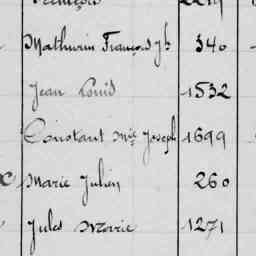 François
Mathurin François Jh 340
Jean Louis 1532
Constant Mie Joseph 1699
Marie Julien 260
Jules Marie 1271